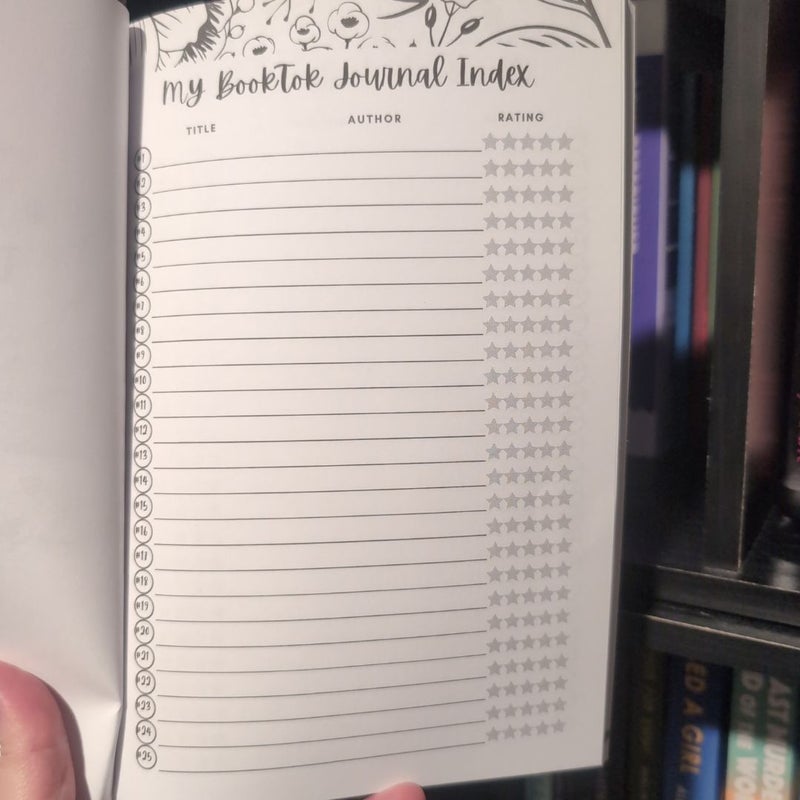 My BookTok Journal Index
TITLE AUTHOR RATING
#1
#2
#3
#4
#5
#6
#7
#8
#9
#10
#11
#12
#13
#14
#15
#16
#17
#18
#19
#20
#21
#22
#23
#24
#25
ED A GIRL
AST MURD
D OF THE WO